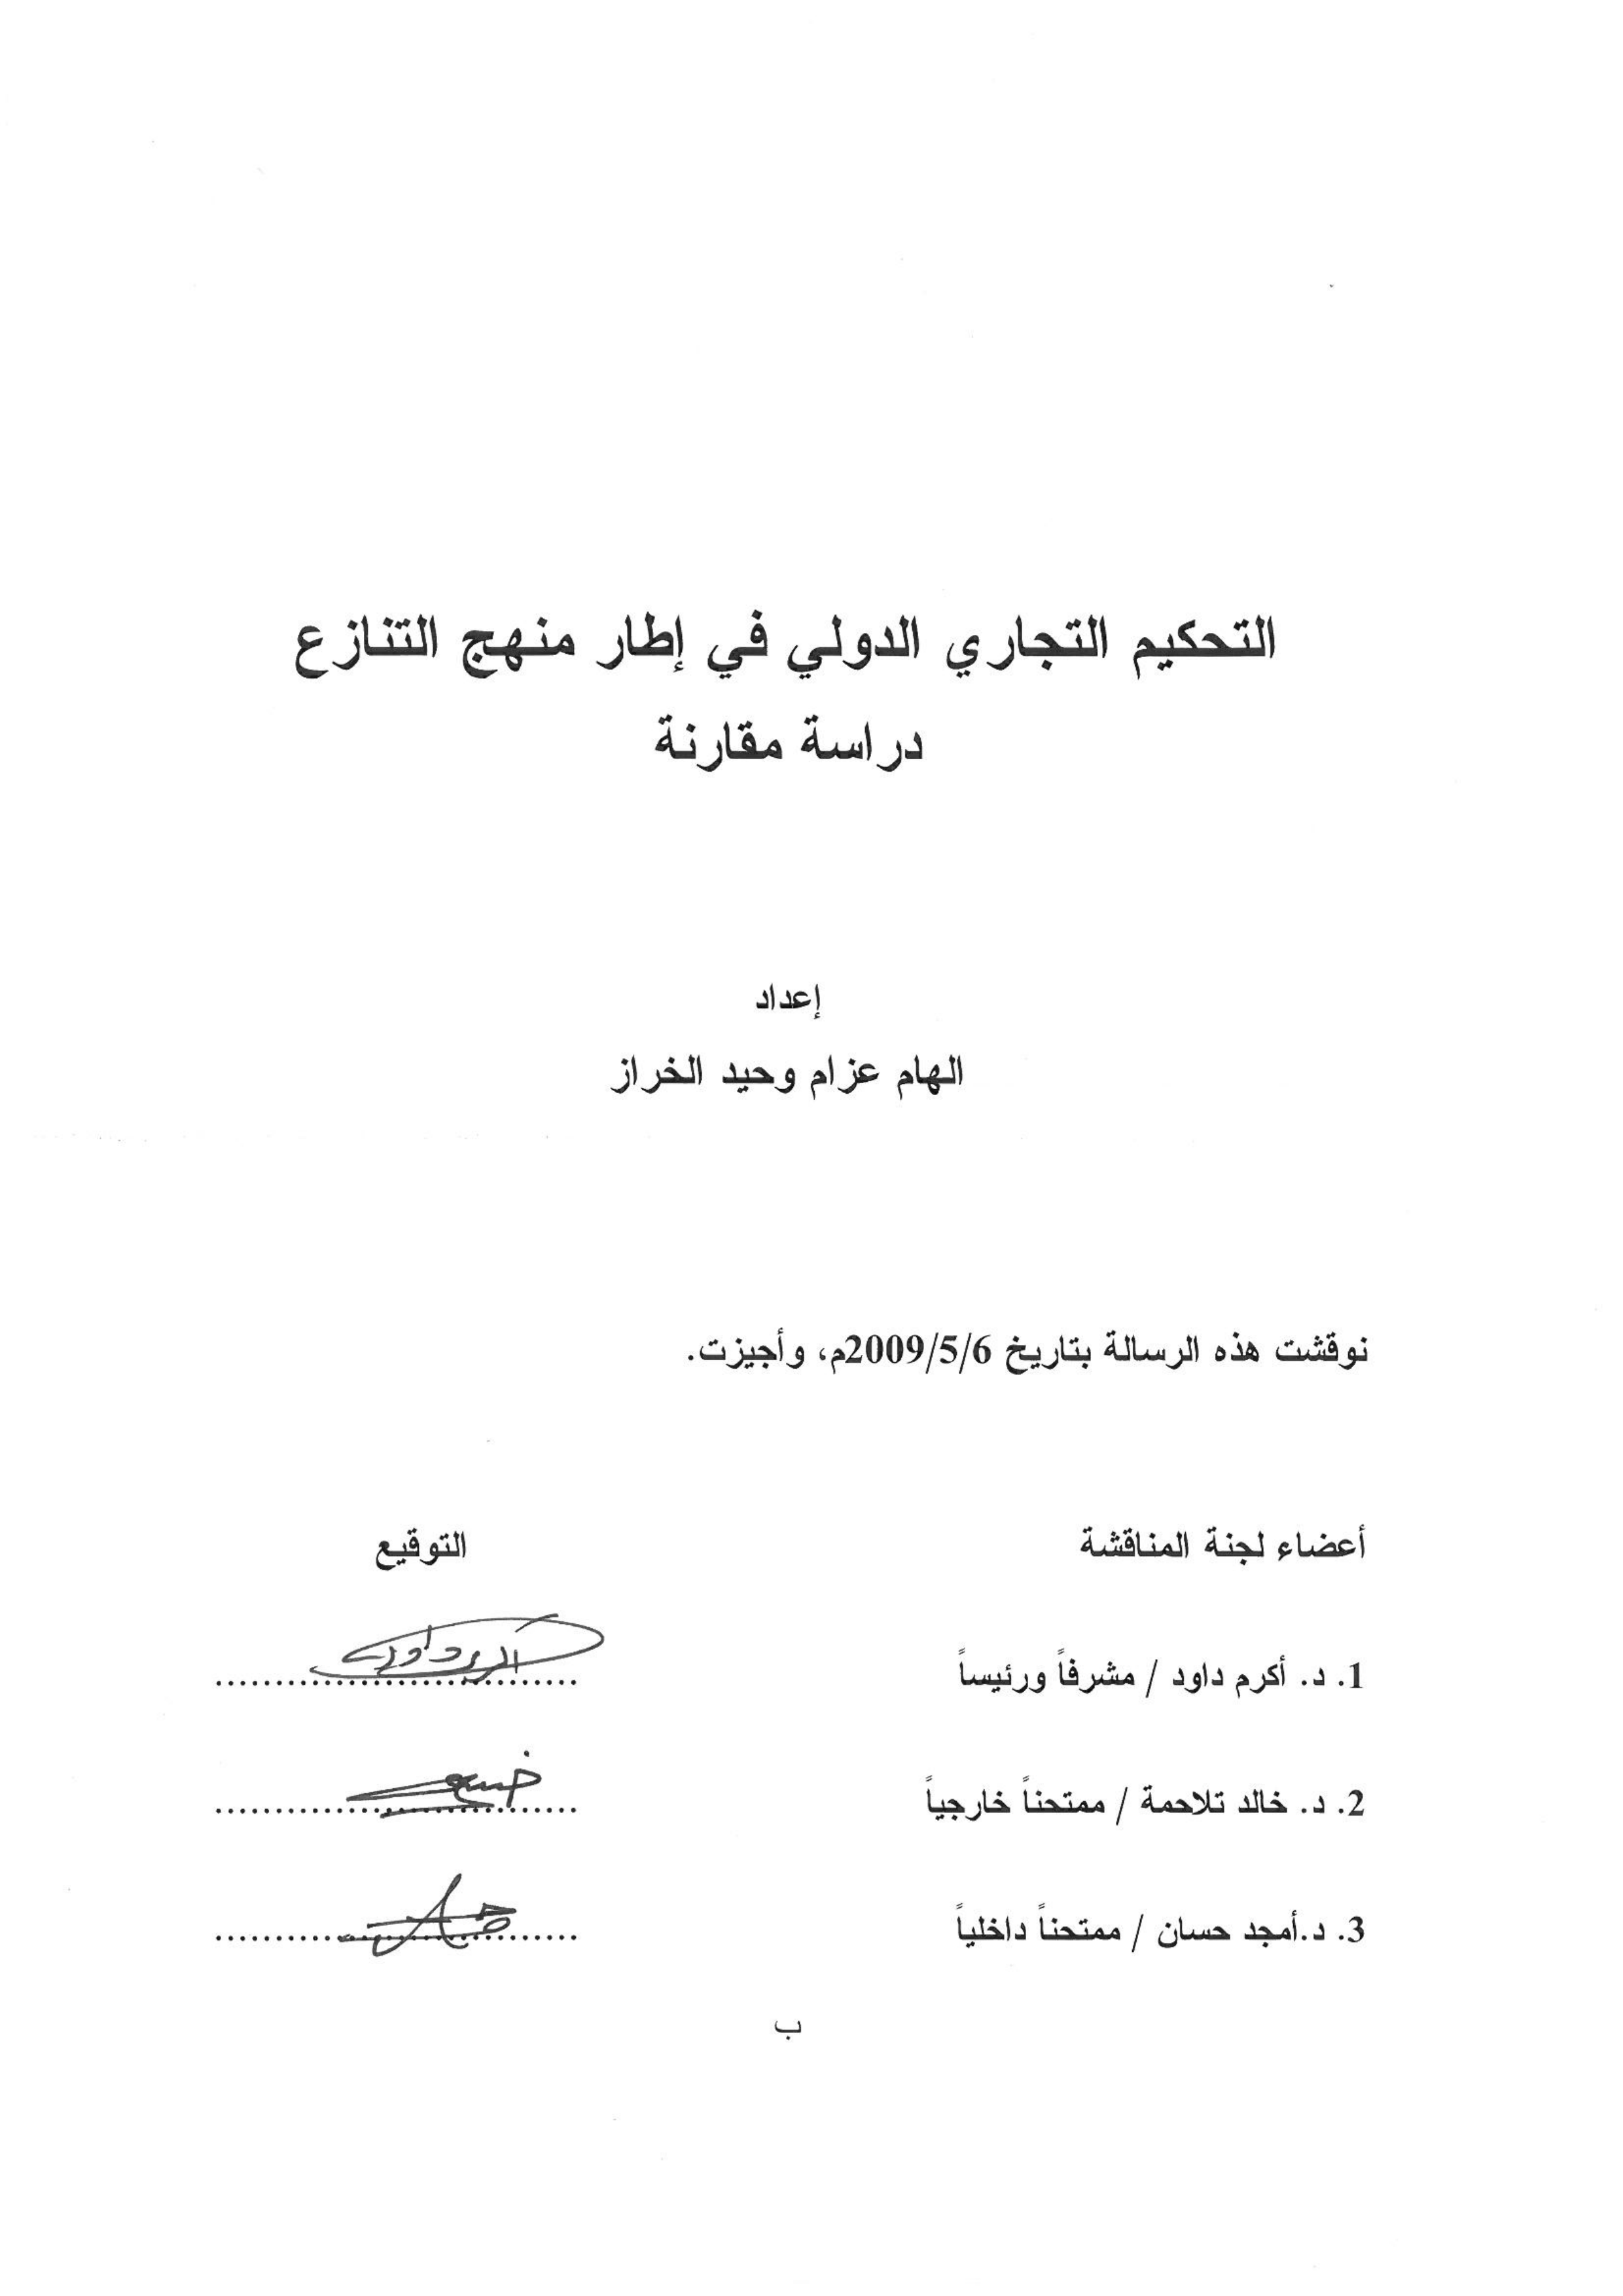 التحكيم التجاري الدولي في إطار منهج التنازع
دراسة مقارنة
إعداد
الهام عزام وحيد الخراز
نوقشت هذه الرسالة بتاريخ 2009/5/6م، وأجيزت.
أعضاء لجنة المناقشة التوقيع
1. د. أكرم داود / مشرفاً ورئيساً ..............................
2. د. خالد تلاحمة / ممتحناً خارجياً ..............................
3. د.أمجد حسان / ممتحناً داخلياً ..............................
ب